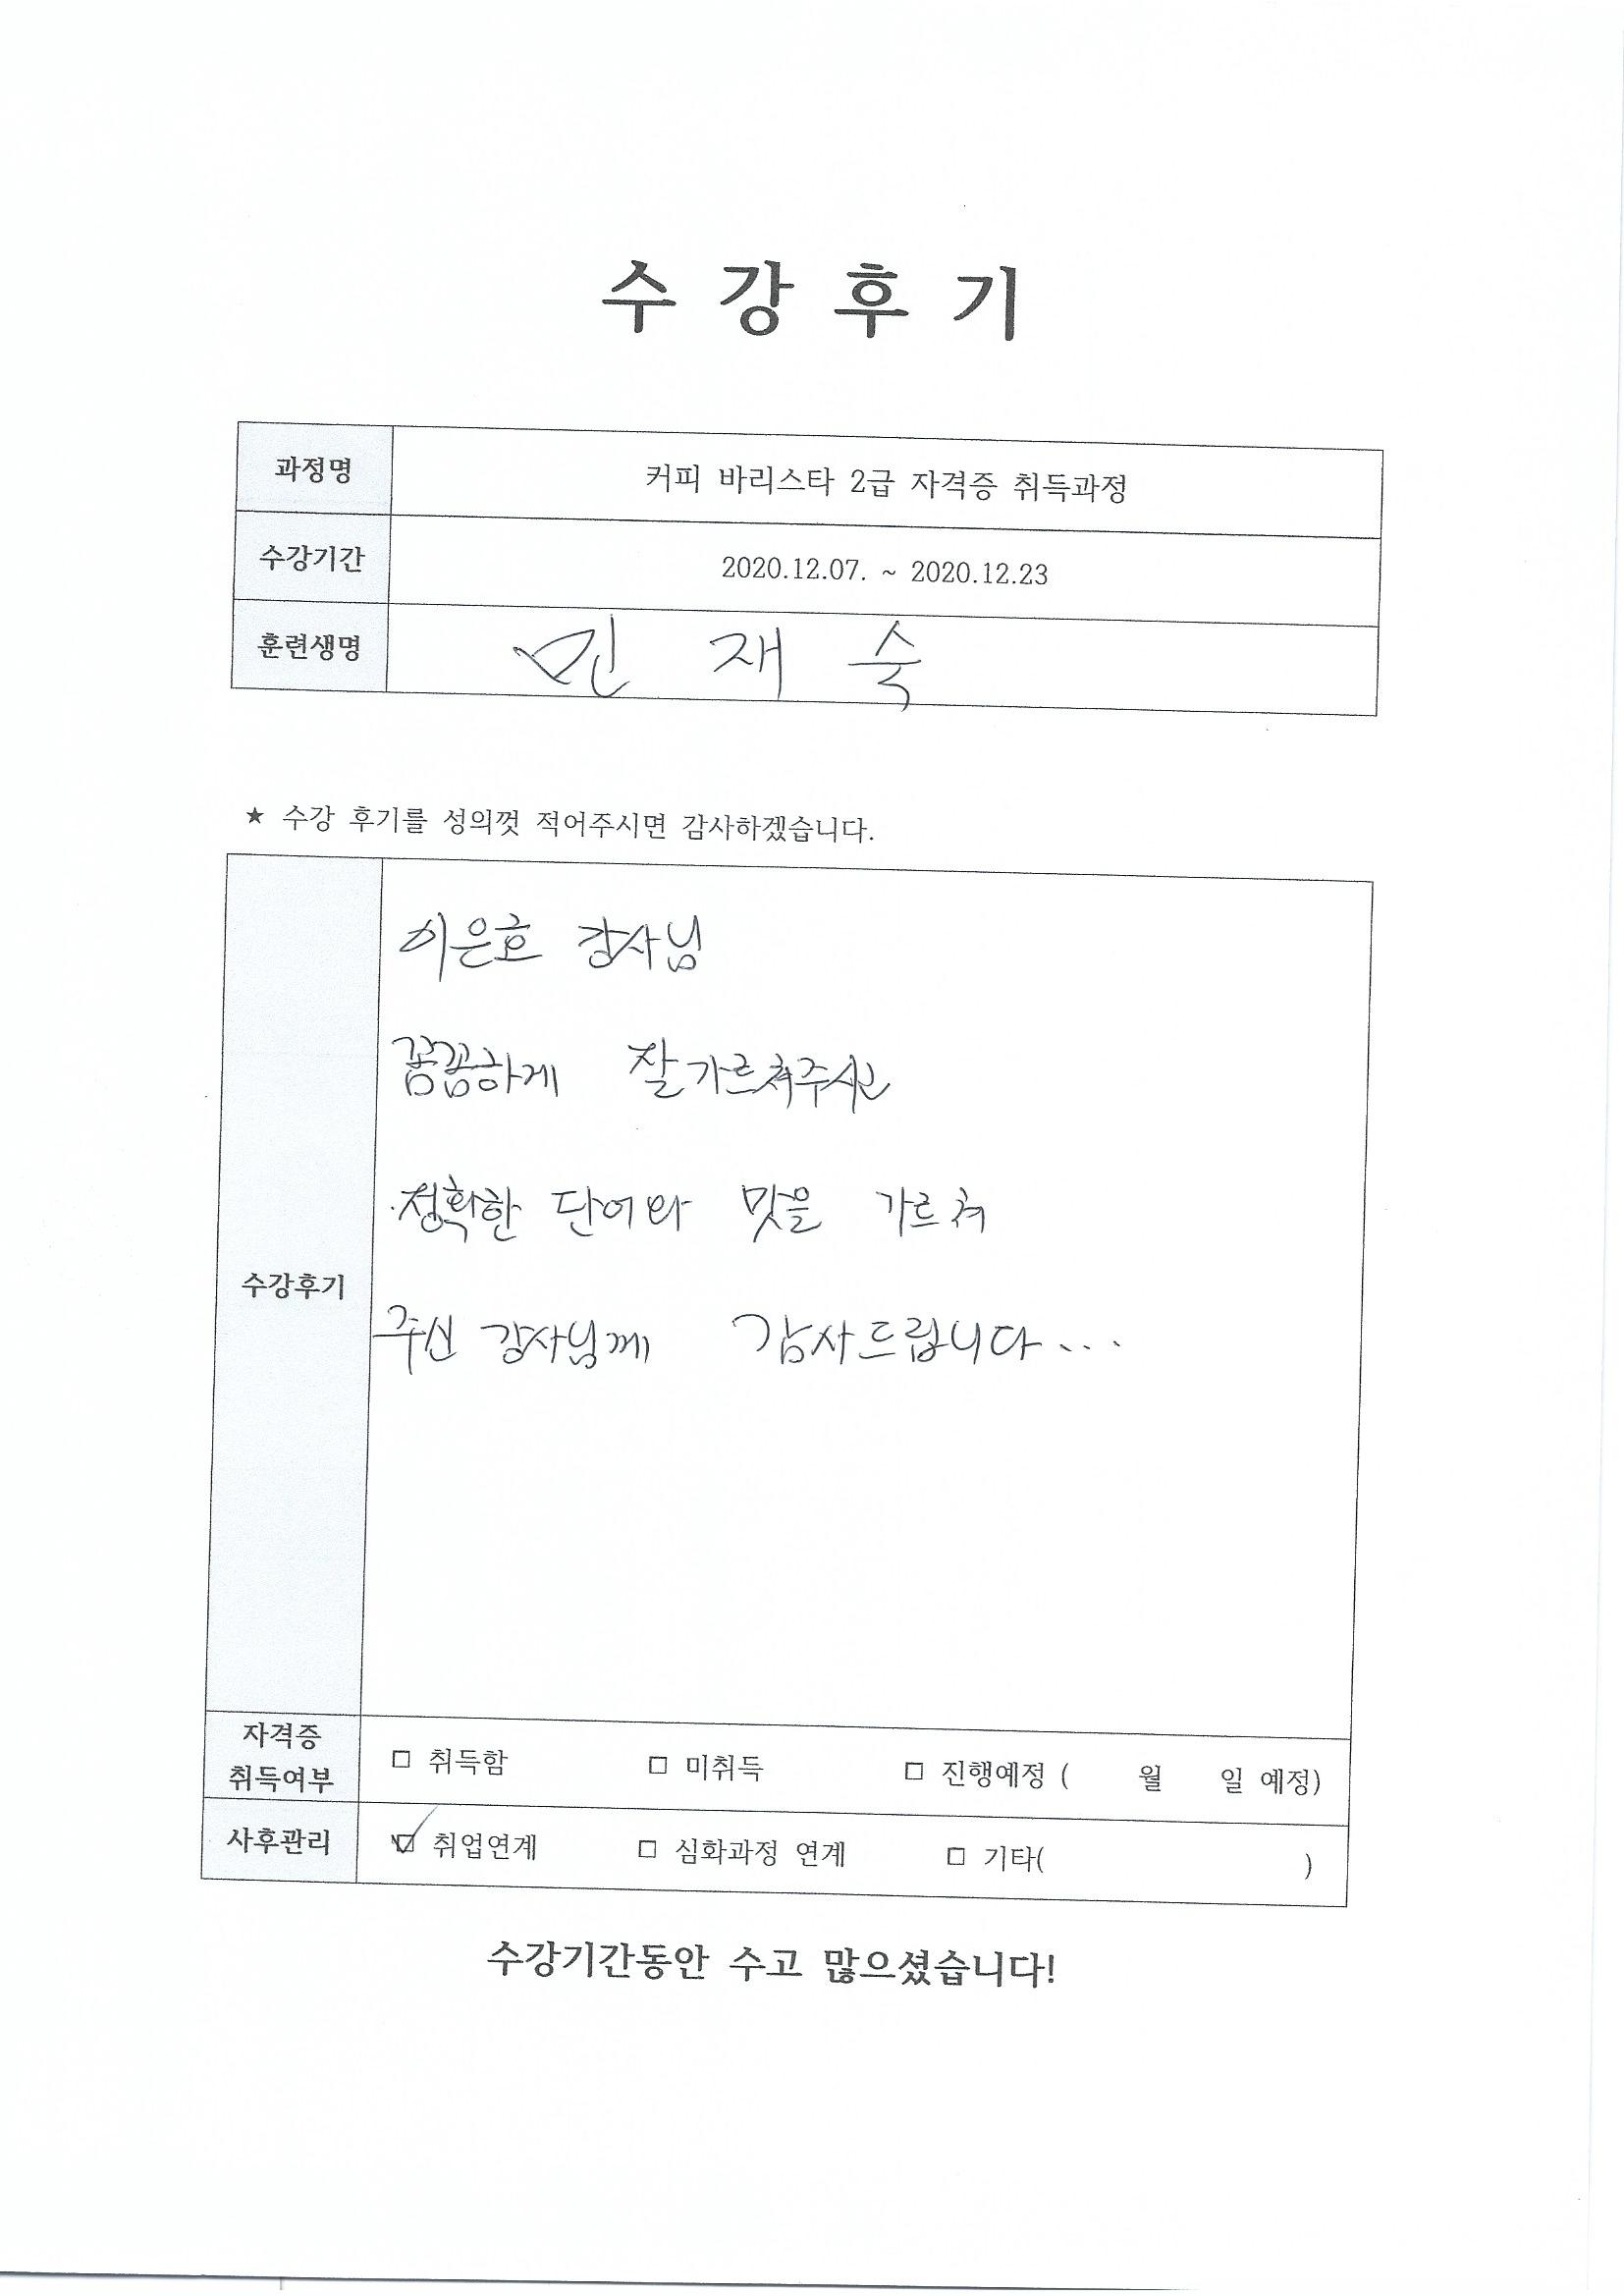 수 강 후 기
과정명 커피 바리스타 2급 자격증 취득과정
수강기간 2020.12.07. ~ 2020.12.23
훈련생명 민 재 숙
★ 수강 후기를 성의껏 적어주시면 감사하겠습니다.
이은호 강사님
꼼꼼하게 잘가르쳐주시고
정확한 단어와 맛을 가르쳐
수강후기
주신 강사님께 감사드립니다...
자격증
취득여부 □ 취득함 □ 미취득 □ 진행예정 ( 월 일 예정)
사후관리 ☑ 취업연계 □ 심화과정 연계 □ 기타( )
수강기간동안 수고 많으셨습니다!